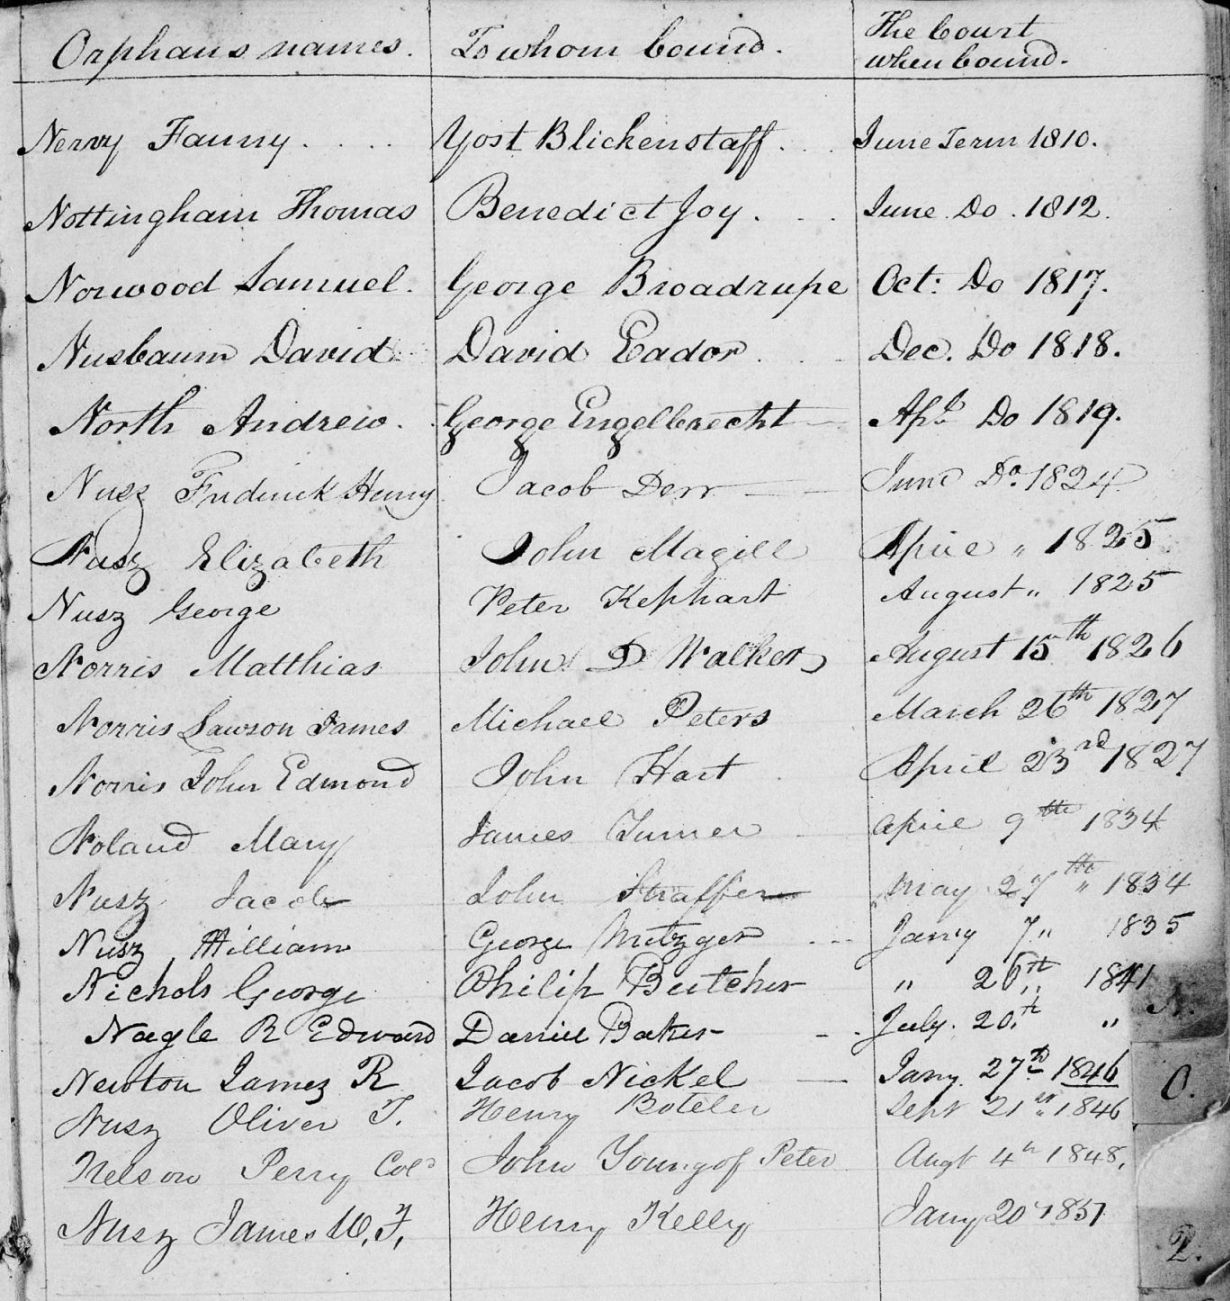 Orphans names. To whom bound. The Court
when bound.
Nervy Fanny. . . . . Yost Blickenstaff . . . June Term 1810.
Nottingham Thomas Benedict Joy. . . . June Do. 1812.
Norwood Samuel. George Broadrupe Oct: Do 1817.
Nusbaum David David Eador . . . Dec. Do 1818.
North Andrew. . George Engelbrecht — Apl. Do 1819.
Nusz Frederick Henry Jacob Derr — — June Do. 1824
Nusz Elizabeth John Magill April " 1825
Nusz George Peter Kephart August " 1825
Norris Matthias John D Walker August 15th 1826
Norris Lawson James Michael Peters March 26th 1827
Norris John Edmond John Hart April 23rd 1827
Noland Mary James Turner April 9th 1834
Nusz Jacob John Shaffer May 27th " 1834
Nusz William George Metzger . . . Jany 7 " 1835
Nichols George Philip Butcher " 26th " 1841
Nagle R Edward Daniel Baker - . July. 20.th "
Newton James R Jacob Nickel — Jany. 27th 1846
Nusz Oliver T. Henry Boteler Sept 21st " 1846
Nelson Perry Cold John Young of Peter Augt 4th 1848.
Nusz James W. F. Henry Kelly Jany 20 1851
N.
O.